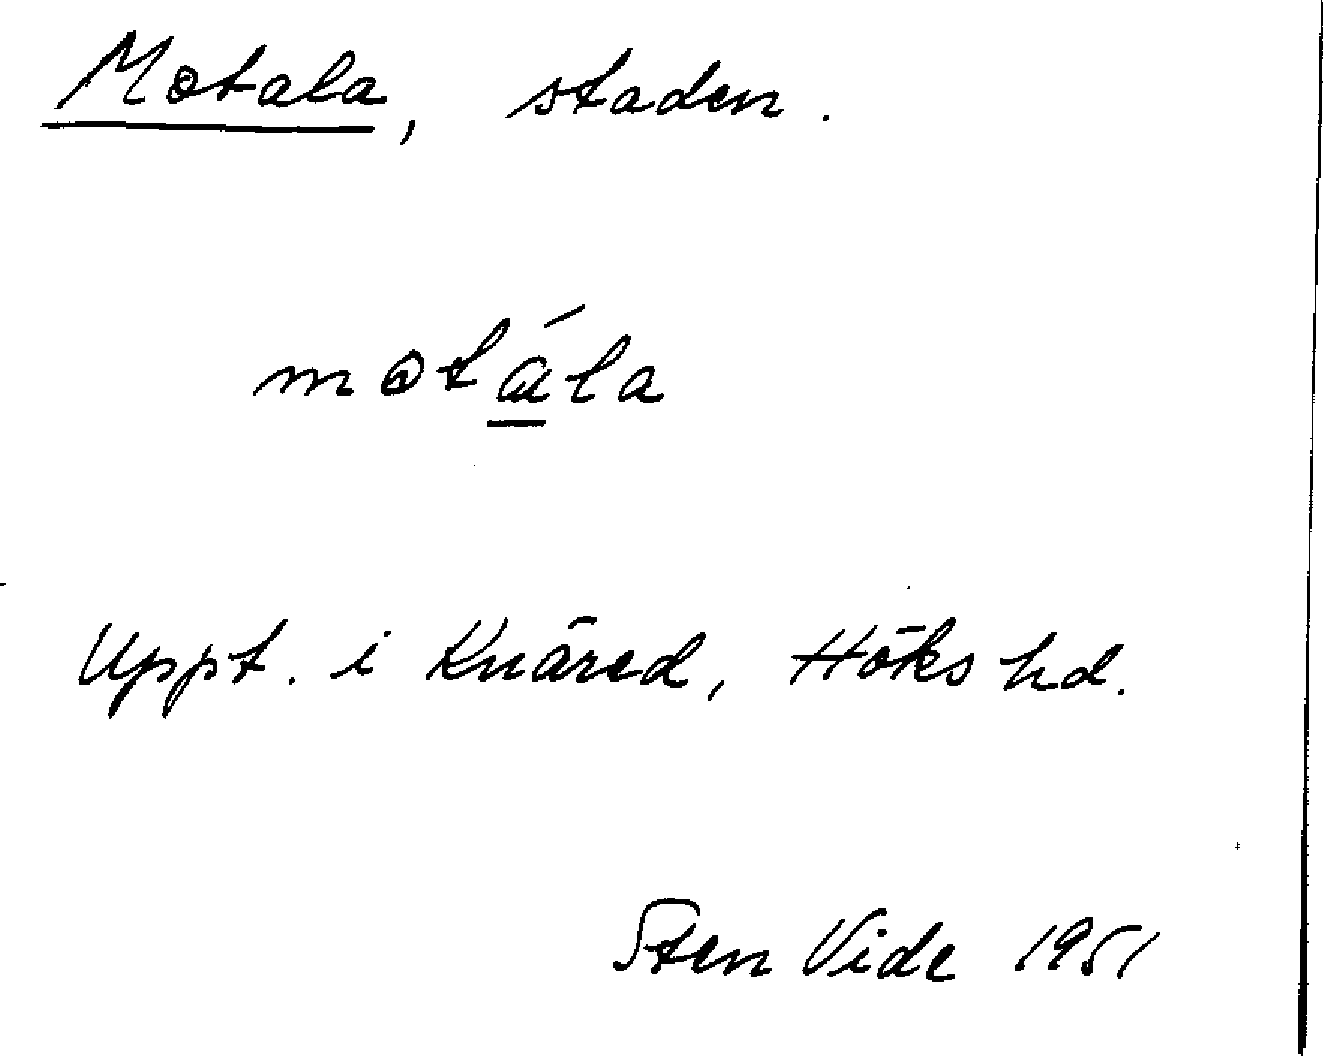 Motala, staden.
motála
Uppt. i Knäred, Höks hd.
Sten Vide 1951